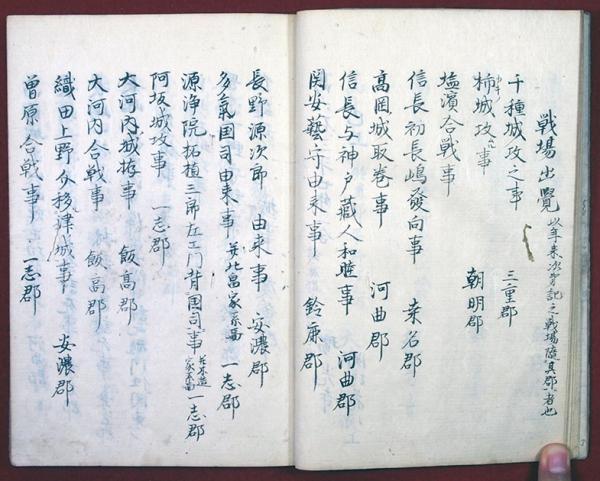 戦場出覧 以年来次第記之戦場随其郡者也
千種城攻之事 三重郡
柿城攻之事 朝明郡
塩濱合戦事
信長初長嶋發向事 桒名郡
高岡城取巻事 河曲郡
信長与神戸藏人和睦事 河曲郡
関安藝守由来事 鈴鹿郡
長野源次郎由来事 安濃郡
多氣国司由来事 并北畠家系図 一志郡
源浄院柘植三郎左エ門背国司事 并木造家系図 一志郡
阿坂城攻事 一志郡
大河内城攻事 飯高郡
大河内合戦事 飯高郡
織田上野介移津城事 安濃郡
曽原合戦事 一志郡